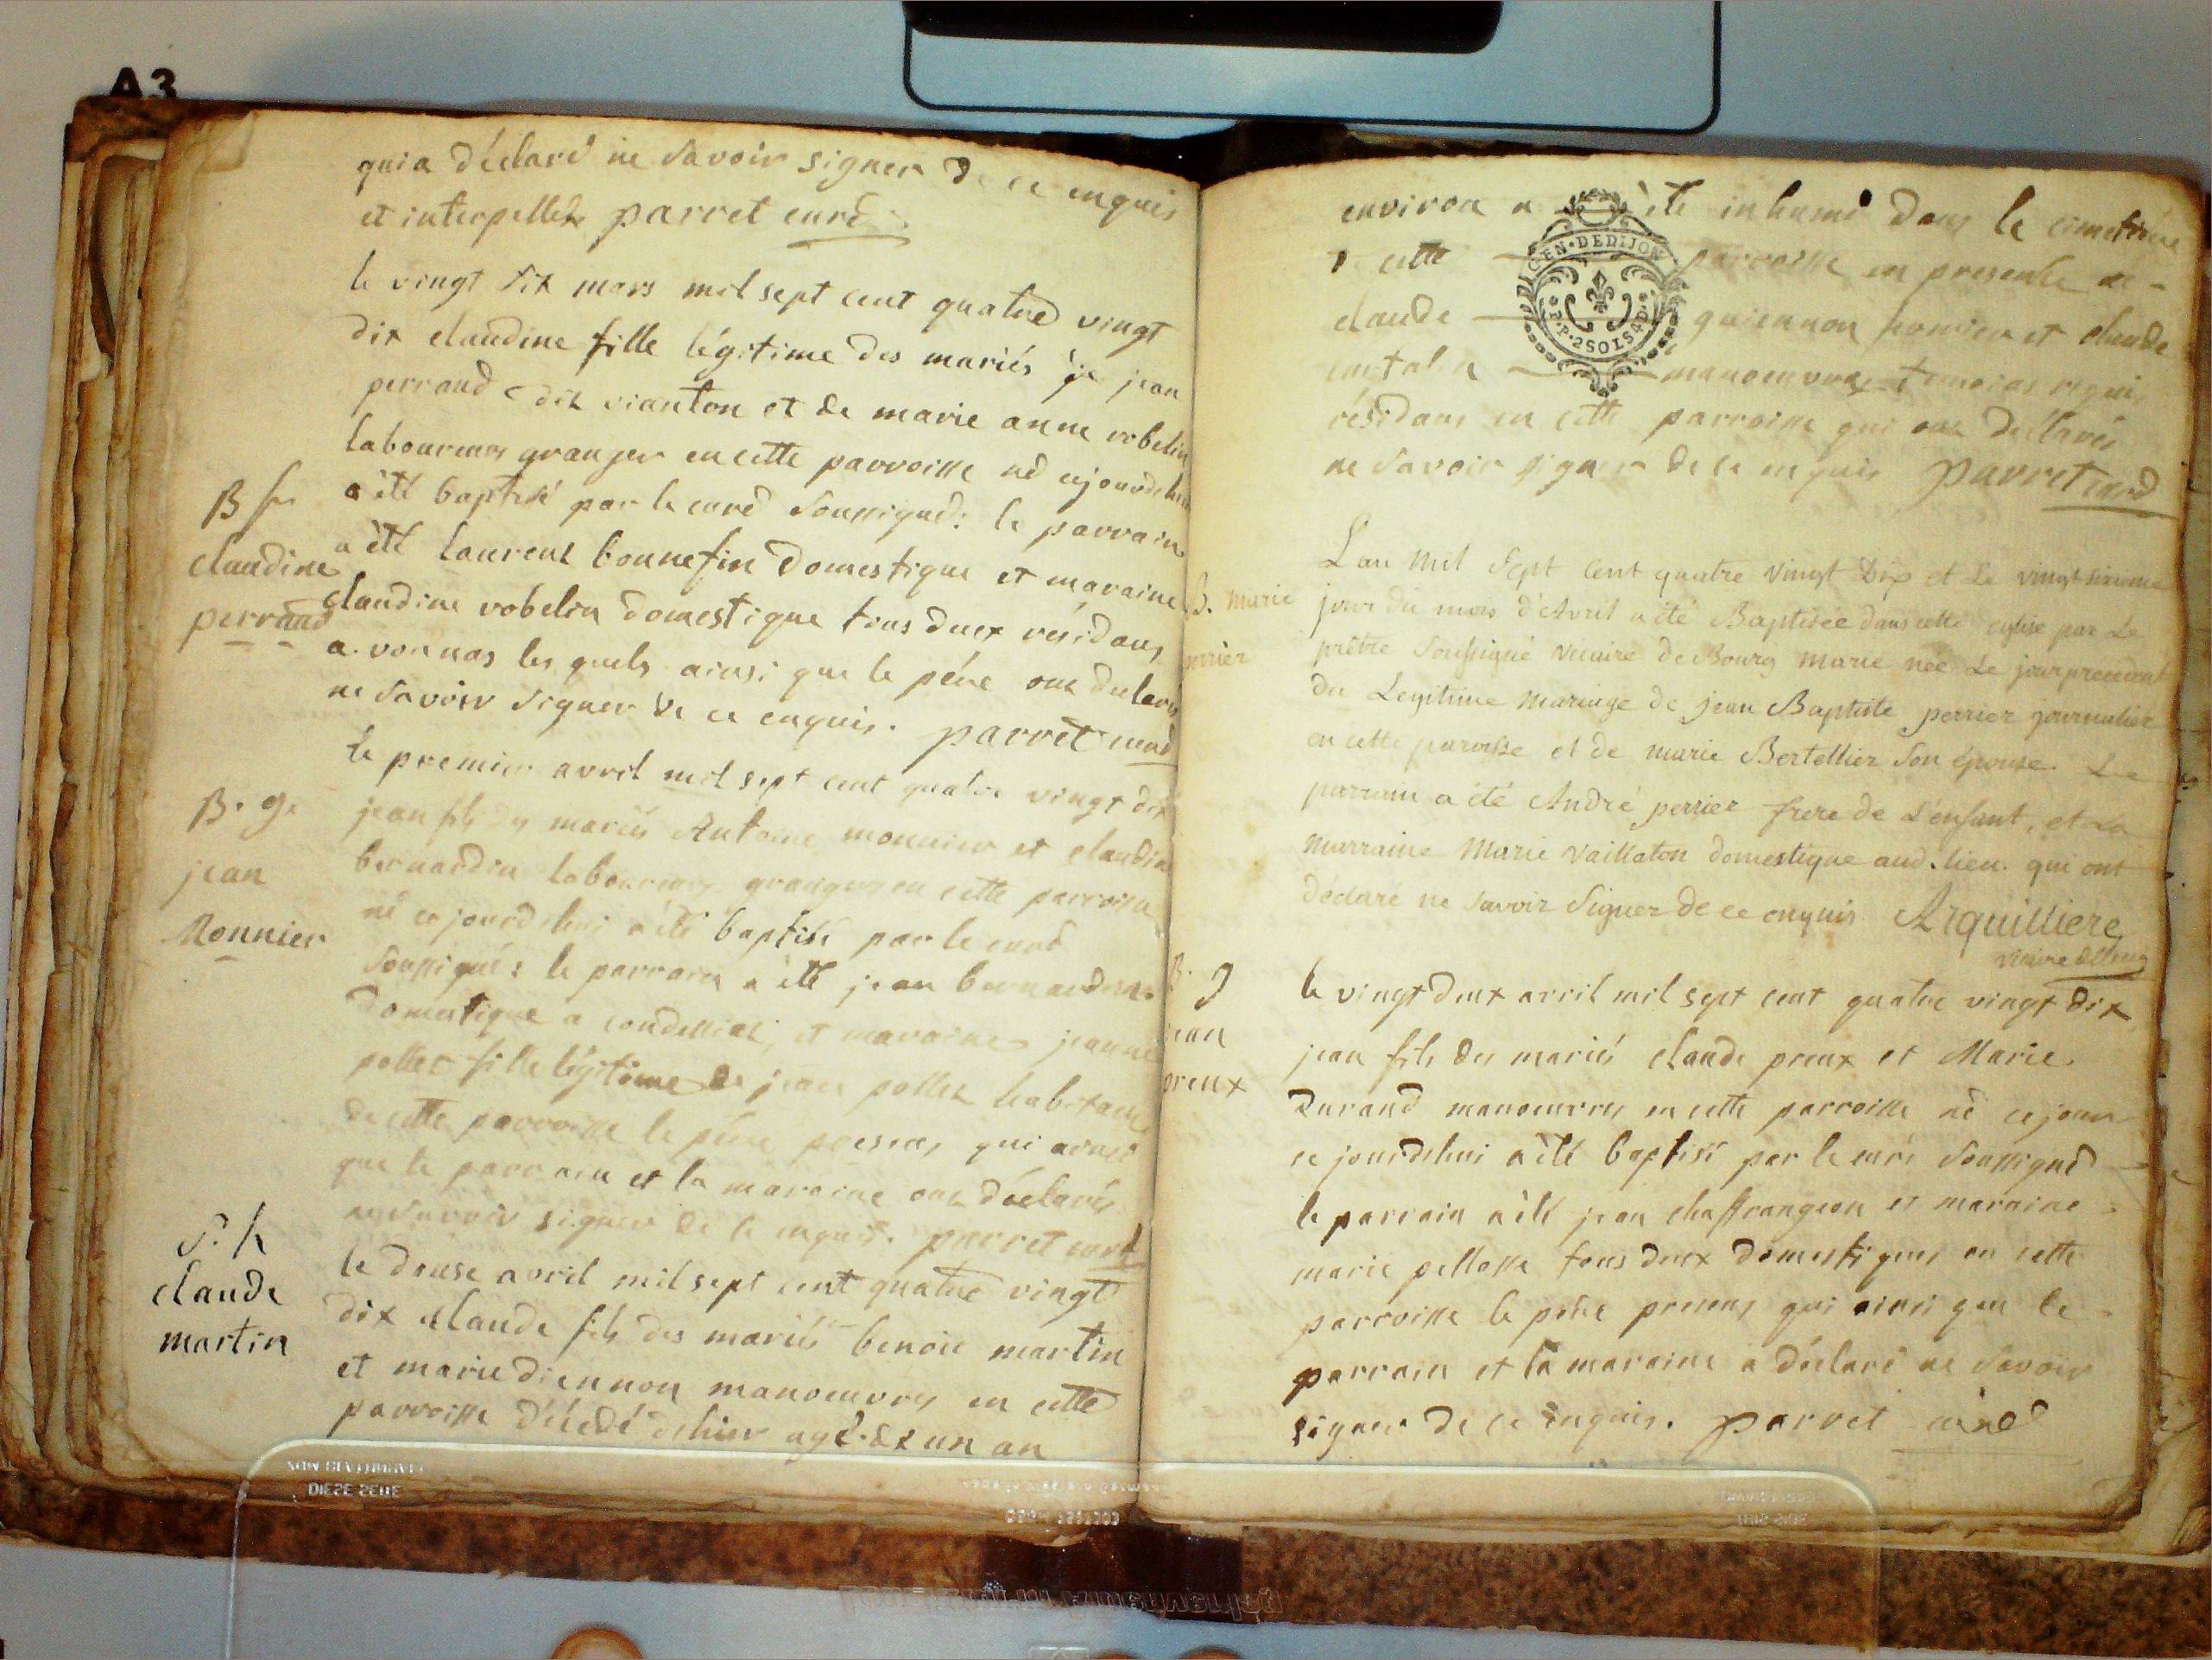 A3
qui a déclaré ne savoir signer de ce enquis
et interpellé parret curé
le vingt six mars mil sept cent quatre vingt
dix claudine fille légitime des mariés jean
perraud dit vianton et de marie anne robelin
laboureurs granger en cette parroisse né cejourdhui
a été baptisé par le curé soussigné: le parrain
B f
claudine
perraud
a été laurent bonnefin domestique et maraine
claudine robelin domestique tous deux résidans
a vonnas les quels ainsi que le père ont declaré
ne savoir signer de ce enquis. parret curé
le premier avril mil sept cent quatre vingt dix
B. g.
jean
Monnier
jean fils des mariés Antoine monnier et claudine
bernardin laboureurs grangers en cette parroisse
né ce jourdhui a été baptisé par le curé
soussigné: le parrain a été jean bernardin
domestique a condessiat, et maraine jeanne
pollet fille légitime de jean pollet habitant
de cette parroisse le père present qui ainsi
que le parrain et la maraine ont déclarés
ne savoir signer de ce enquis. parret curé
S. h
claude
martin
le douse avril mil sept cent quatre vingt
dix claude fils des mariés benoit martin
et marie diennon manoeuvres en cette
parroisse décédé dhier agé de un an
environ a été inhumé dans le cimetière
de cette parroisse en presence de
claude guiennon et claude
manoeuvre temoins requis
résidans en cette parroisse qui ont déclarés
ne savoir signer de ce enquis parret curé
GEN·DE DIJON
2 SOLS 4 D.
B. marie
perrier
L'an mil sept cent quatre vingt Dix et le vingt sixieme
jour du mois d'Avril a été Baptisée dans cette eglise par Le
prêtre soussigné vicaire de Bourg marie née Le jour precedent
du Legitime mariage de jean Baptiste perrier journalier
en cette paroisse et de marie Bertellier son épouse. Le
parrain a été André perrier frere de L'enfant, et La
marraine Marie Vaillaton domestique aud. lieu. qui ont
déclaré ne savoir signer de ce enquis Arquilliere
vicaire de Bourg
B. g
jean
preux
le vingt deux avril mil sept cent quatre vingt dix
jean fils des mariés claude preux et Marie
Durand manoeuvres en cette parroisse né ce jour
ce jourdhui a été baptisé par le curé soussigné
le parrain a été jean chaffrangeon et maraine
marie pellosse tous deux domestiques en cette
parroisse le père present qui ainsi que le
parrain et la maraine a déclaré ne savoir
signer de ce enquis. parret curé